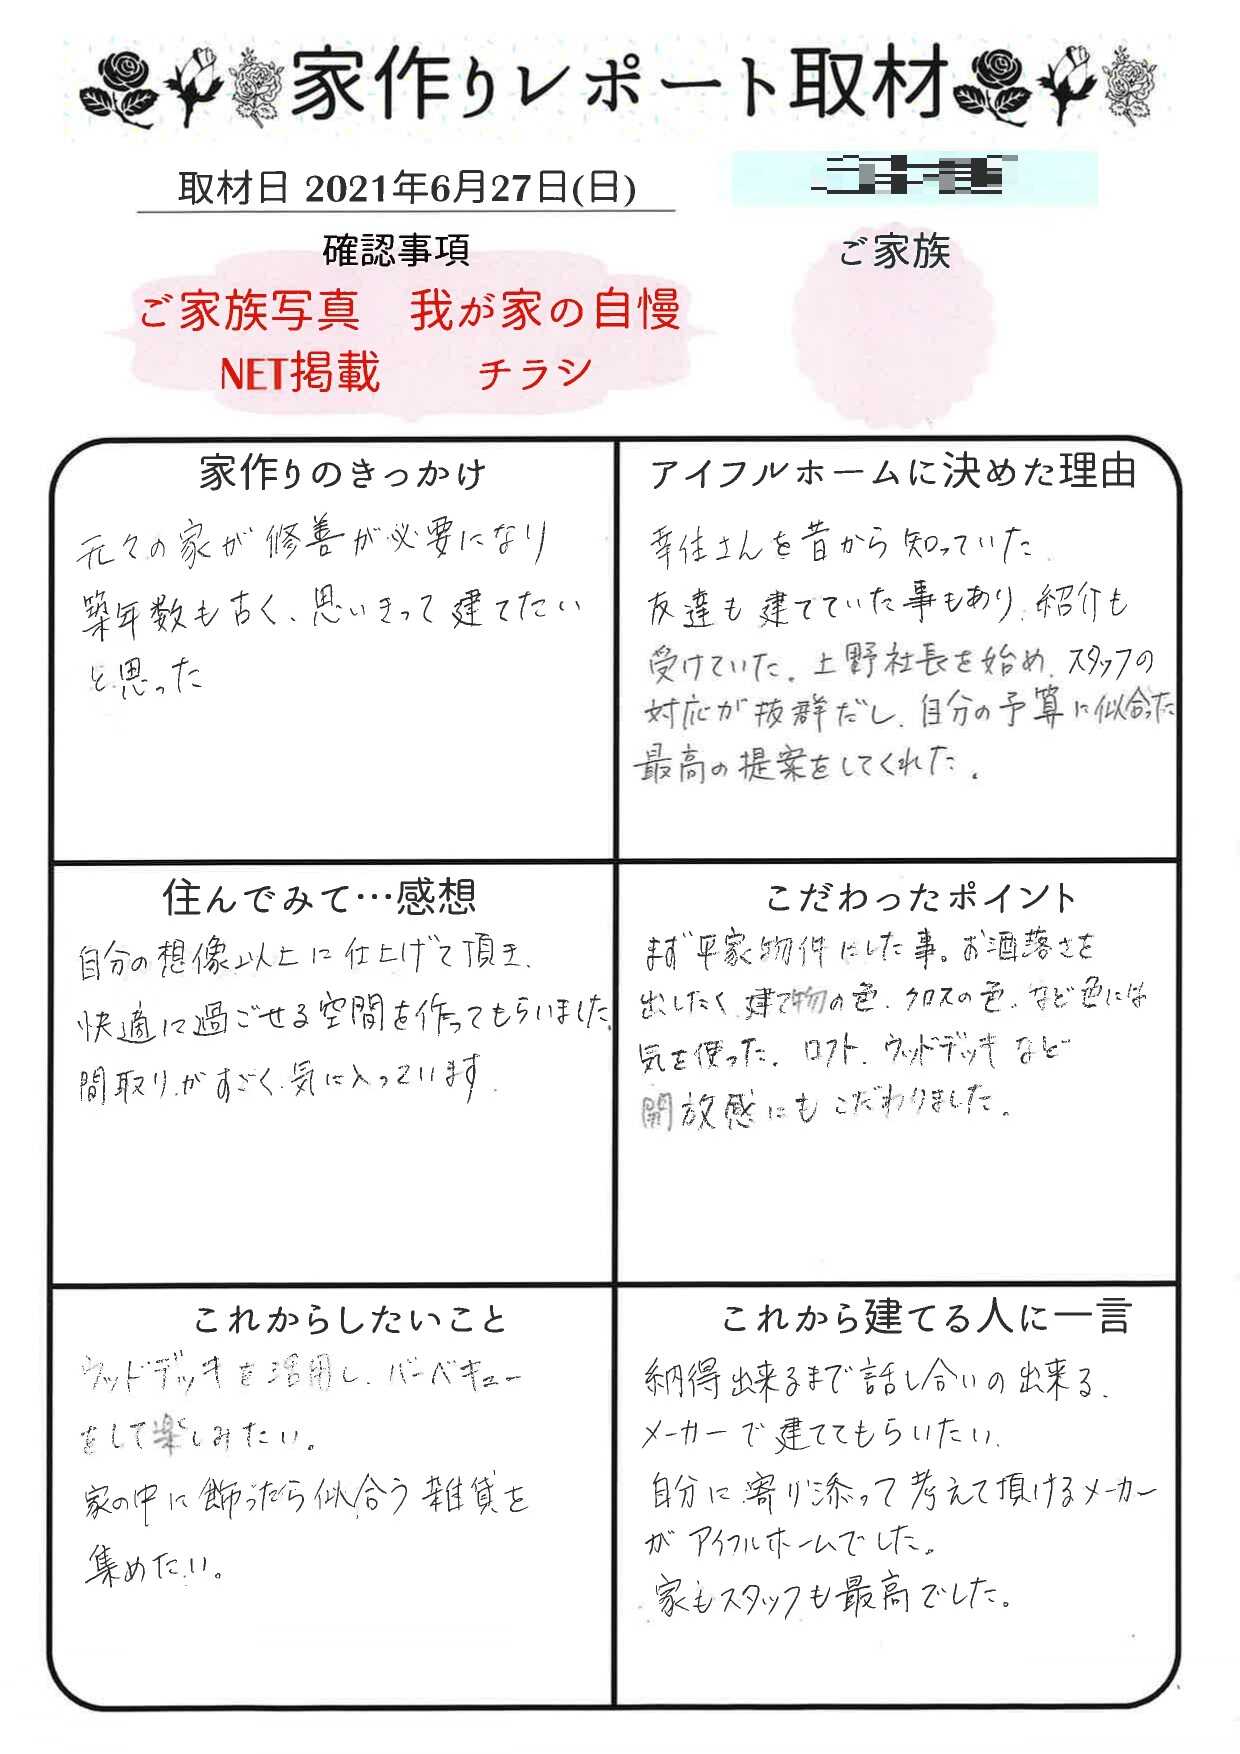 家作りレポート取材
取材日 2021年6月27日(日)
確認事項
ご家族写真 我が家の自慢
NET掲載 チラシ
ご家族
家作りのきっかけ
元々の家が修善が必要になり
築年数も古く、思いきって建てたい
と思った
アイフルホームに決めた理由
幸住さんを昔から知っていた.
友達も建てていた事もあり、紹介も
受けていた。上野社長を始め、スタッフの
対応が抜群だし、自分の予算に似合った
最高の提案をしてくれた。
住んでみて…感想
自分の想像以上に仕上げて頂き、
快適に過ごせる空間を作ってもらいました。
間取りがすごく気に入っています.
こだわったポイント
まず平家物件にした事。お洒落さを
出したく建て物の色、クロスの色、など色には
気を使った。ロフト、ウッドデッキなど
開放感にもこだわりました。
これからしたいこと
ウッドデッキを活用し、バーベキュー
をして楽しみたい。
家の中に飾ったら似合う雑貨を
集めたい。
これから建てる人に一言
納得出来るまで話し合いの出来る、
メーカーで建ててもらいたい、
自分に寄り添って考えて頂けるメーカー
がアイフルホームでした。
家もスタッフも最高でした。